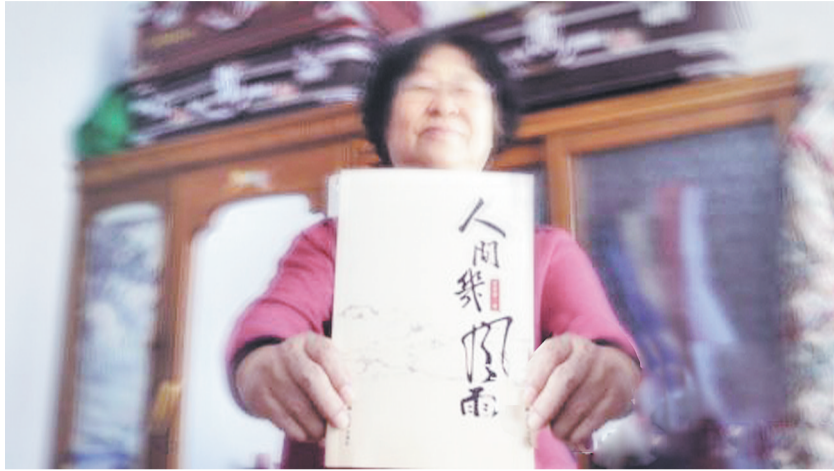 人间几风雨